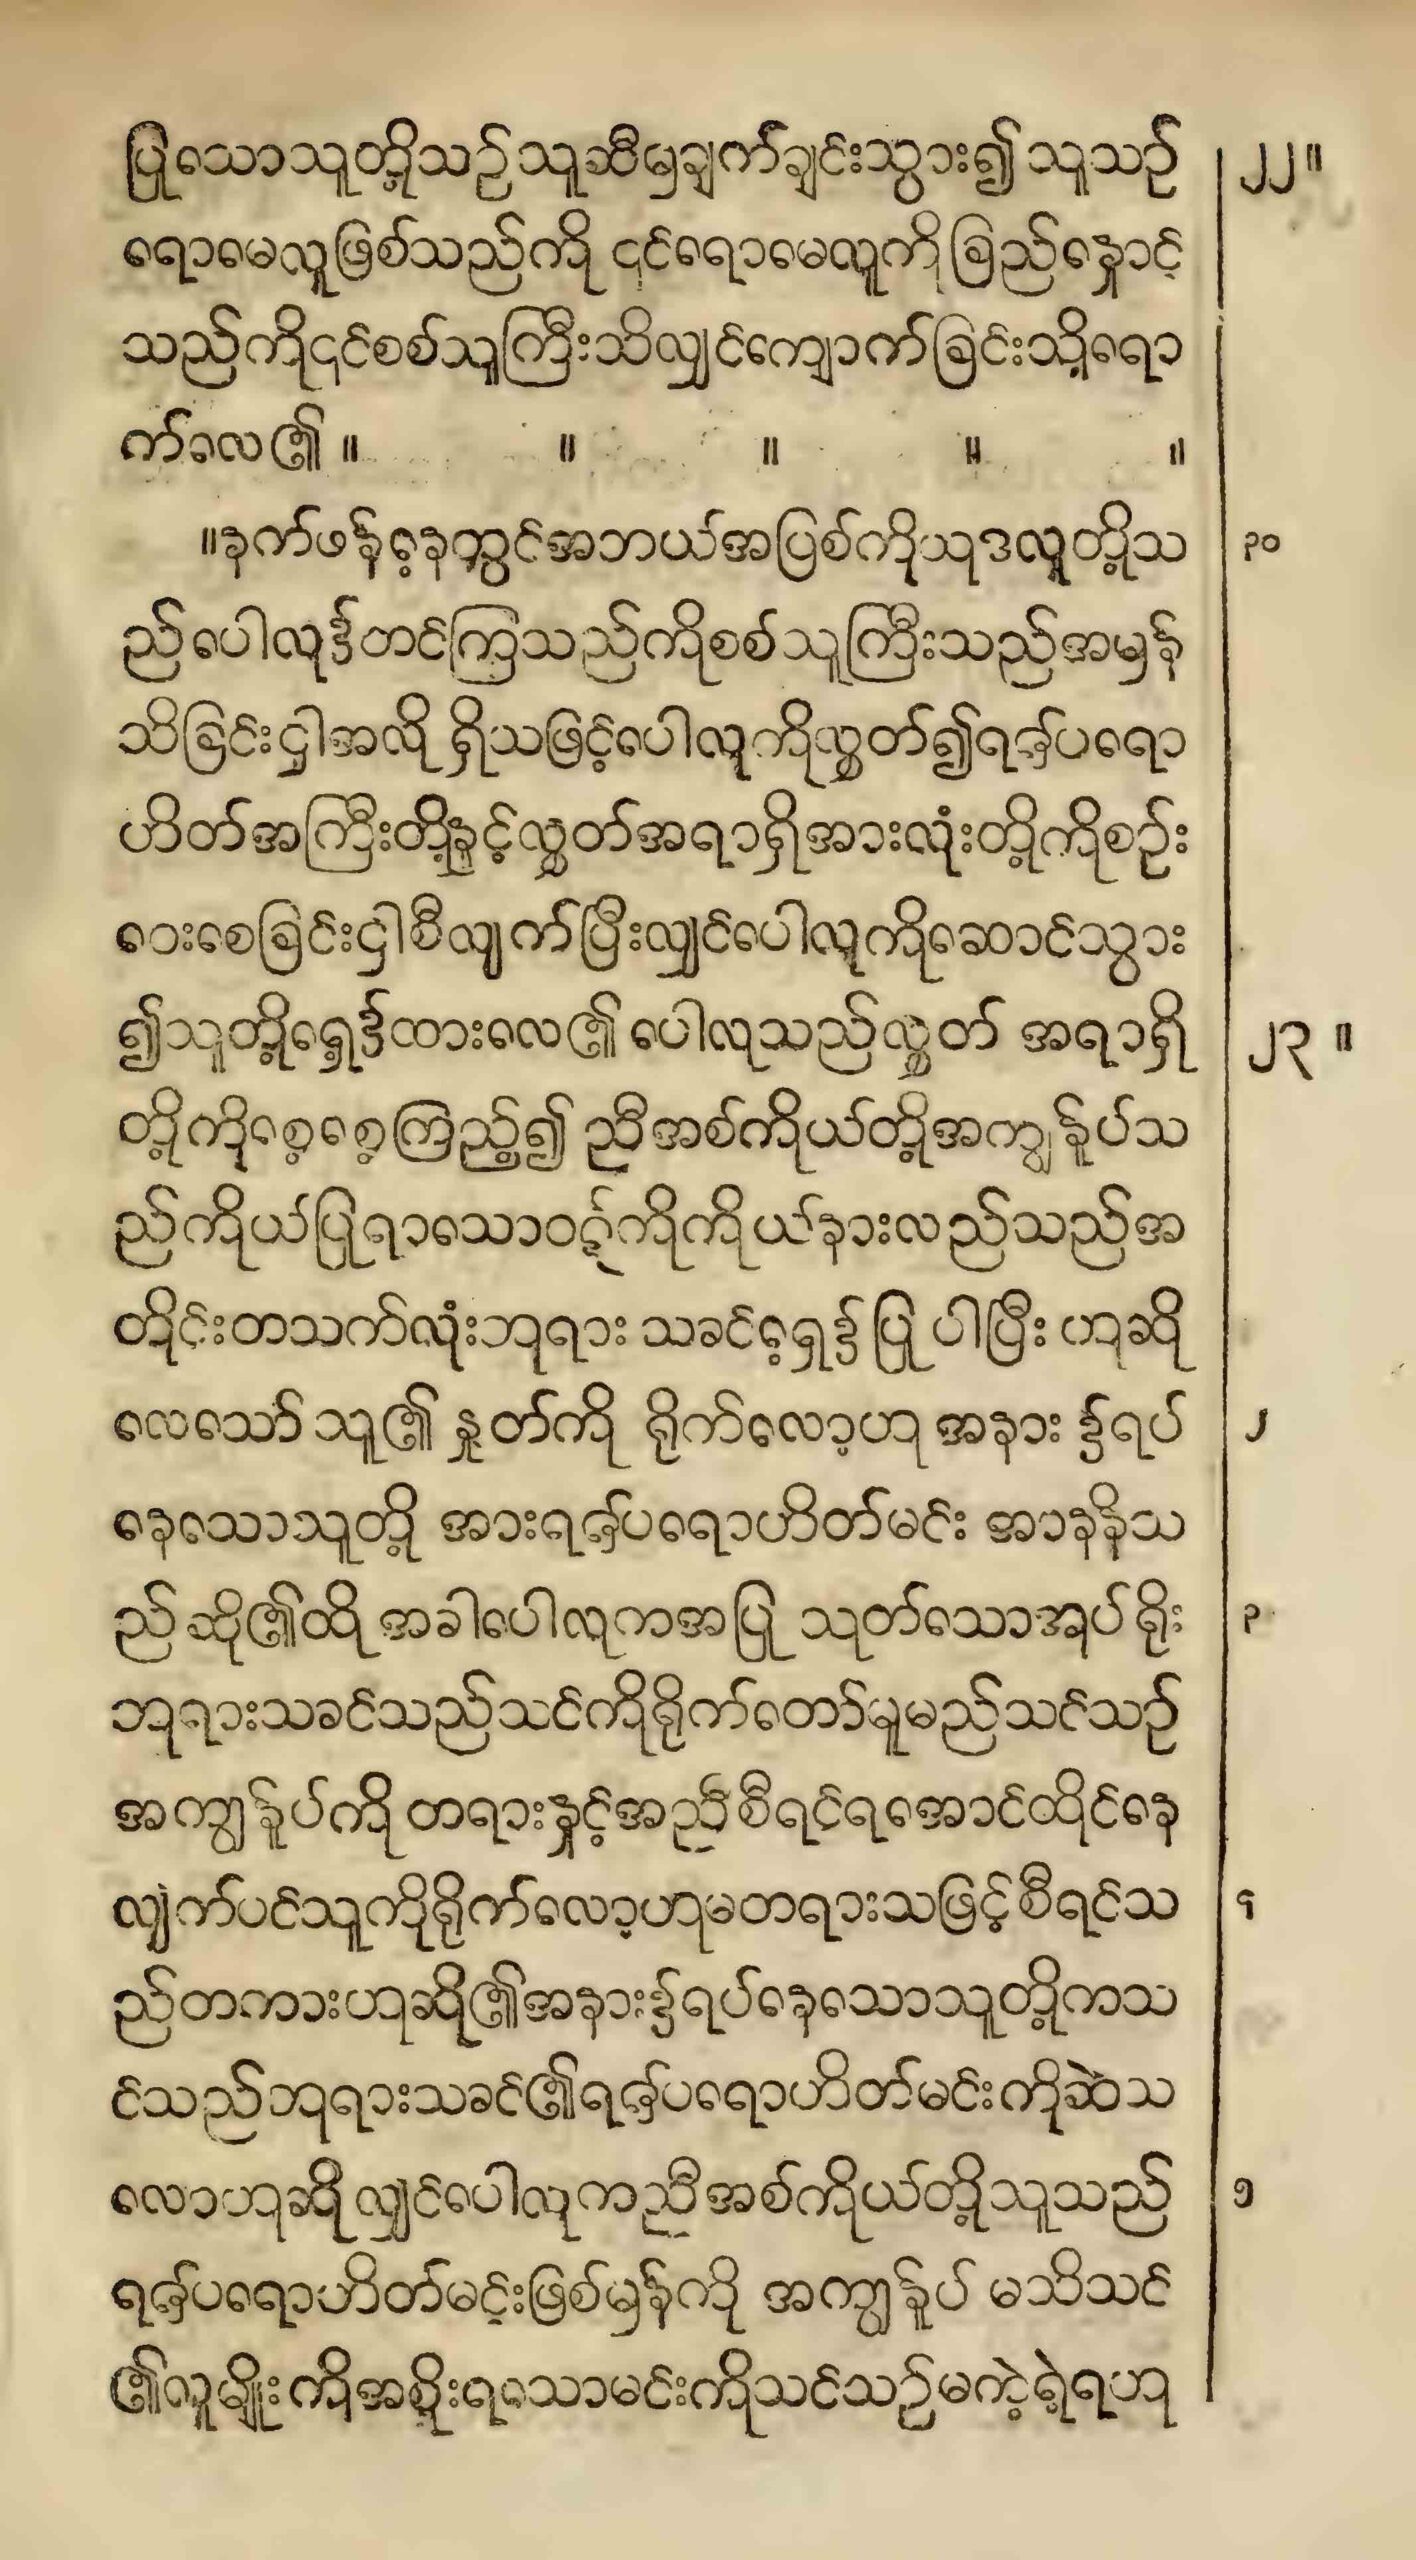 ပြုသောသူတို့သဉ်သူဆီမှချက်ချင်းသွား၍သူသဉ် ၂၂။
ရောမေလူဖြစ်သည်ကို၎င်ရောမေလူကိုခြည်နှောင့်
သည်ကို၎င်စစ်သူကြီးသိလျှင်ကျောက်ခြင်းသို့ရော
က်လေ၏။ ။ ။ ။ ။
။နက်ဖန်နေ့တွင်အဘယ်အပြစ်ကိုယုဒလူတို့သ ၃၀
ည်ပေါလု၌တင်ကြသည်ကိုစစ်သူကြီးသည်အမှန်
သိခြင်းငှါအလိုရှိသဖြင့်ပေါလူကိုလွှတ်၍ရဟ်ပရော
ဟိတ်အကြီးတို့နှင့်လွှတ်အရာရှိအားလုံးတို့ကိုစဉ်း
ဝေးစေခြင်းငှါစီလျက်ပြီးလျှင်ပေါလူကိုဆောင်သွား
၍သူတို့ရှေ့၌ထားလေ၏ပေါလုသည်လွှတ် အရာရှိ ၂၃။
တို့ကိုစေ့စေ့ကြည့်၍ ညီအစ်ကိုယ်တို့အကျွန်ုပ်သ
ည်ကိုယ်ပြုရာသောဝဋ်ကိုကိုယ်နားလည်သည်အ
တိုင်းတသက်လုံးဘုရား သခင့်ရှေ့၌ ပြု ပါပြီး ဟုဆို
လေသော် သူ၏ နှုတ်ကို ရိုက်လော့ဟု အနား ၌ရပ် ၂
နေသောသူတို့ အားရဟ်ပရောဟိတ်မင်း အာနနိသ
ည်ဆို၏ထို အခါပေါလုကအပြု သုတ်သောအုပ်ရိုး ၃
ဘုရားသခင်သည်သင်ကိုရိုက်တော်မူမည်သင်သဉ်
အကျွန်ုပ်ကို တရားနှင့်အညီစီရင်ရအောင်ထိုင်နေ
လျှက်ပင်သူကိုရိုက်လော့ဟုမတရားသဖြင့်စီရင်သ ၄
ည်တကားဟုဆို၏အနား၌ရပ်နေသောသူတို့ကသ
င်သည်ဘုရားသခင်၏ရဟ်ပရောဟိတ်မင်းကိုဆဲသ
လောဟုဆိုလျှင်ပေါလုကညီအစ်ကိုယ်တို့သူသည် ၅
ရဟ်ပရောဟိတ်မင်းဖြစ်မှန်ကို အကျွန်ုပ် မသိသင်
၏လူမျိုးကိုအစိုးရသောမင်းကိုသင်သဉ်မကဲ့ရဲ့ရဟု